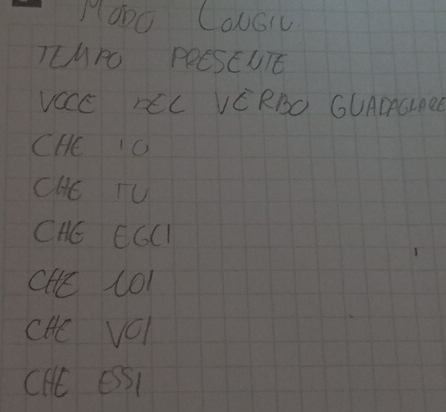 MODO CONGIU
TEMPO PRESENTE
VOCE DEL VERBO GUADAGNARE
CHE IO
CHE TU
CHE EGLI
CHE NOI
CHE VOI
CHE ESSI